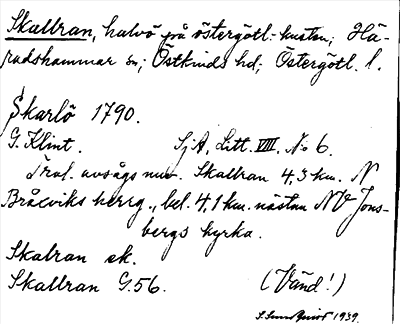 Skallran, halvö på östergötl.-kusten; Hä-
radshammar sn; Östkinds hd; Östergötl. l.
Skarlö 1790.
G. Klint. SjA, Litt. VIII. No 6.
Trol. avsågs nuv. Skallran 4,3 km. N
Bråcviks herrg., bel. 4,1 km. nästan NV Jons-
bergs kyrka.
Skalran ek.
Skallran G.56. (Vänd!)
S. Sundquist 1939.